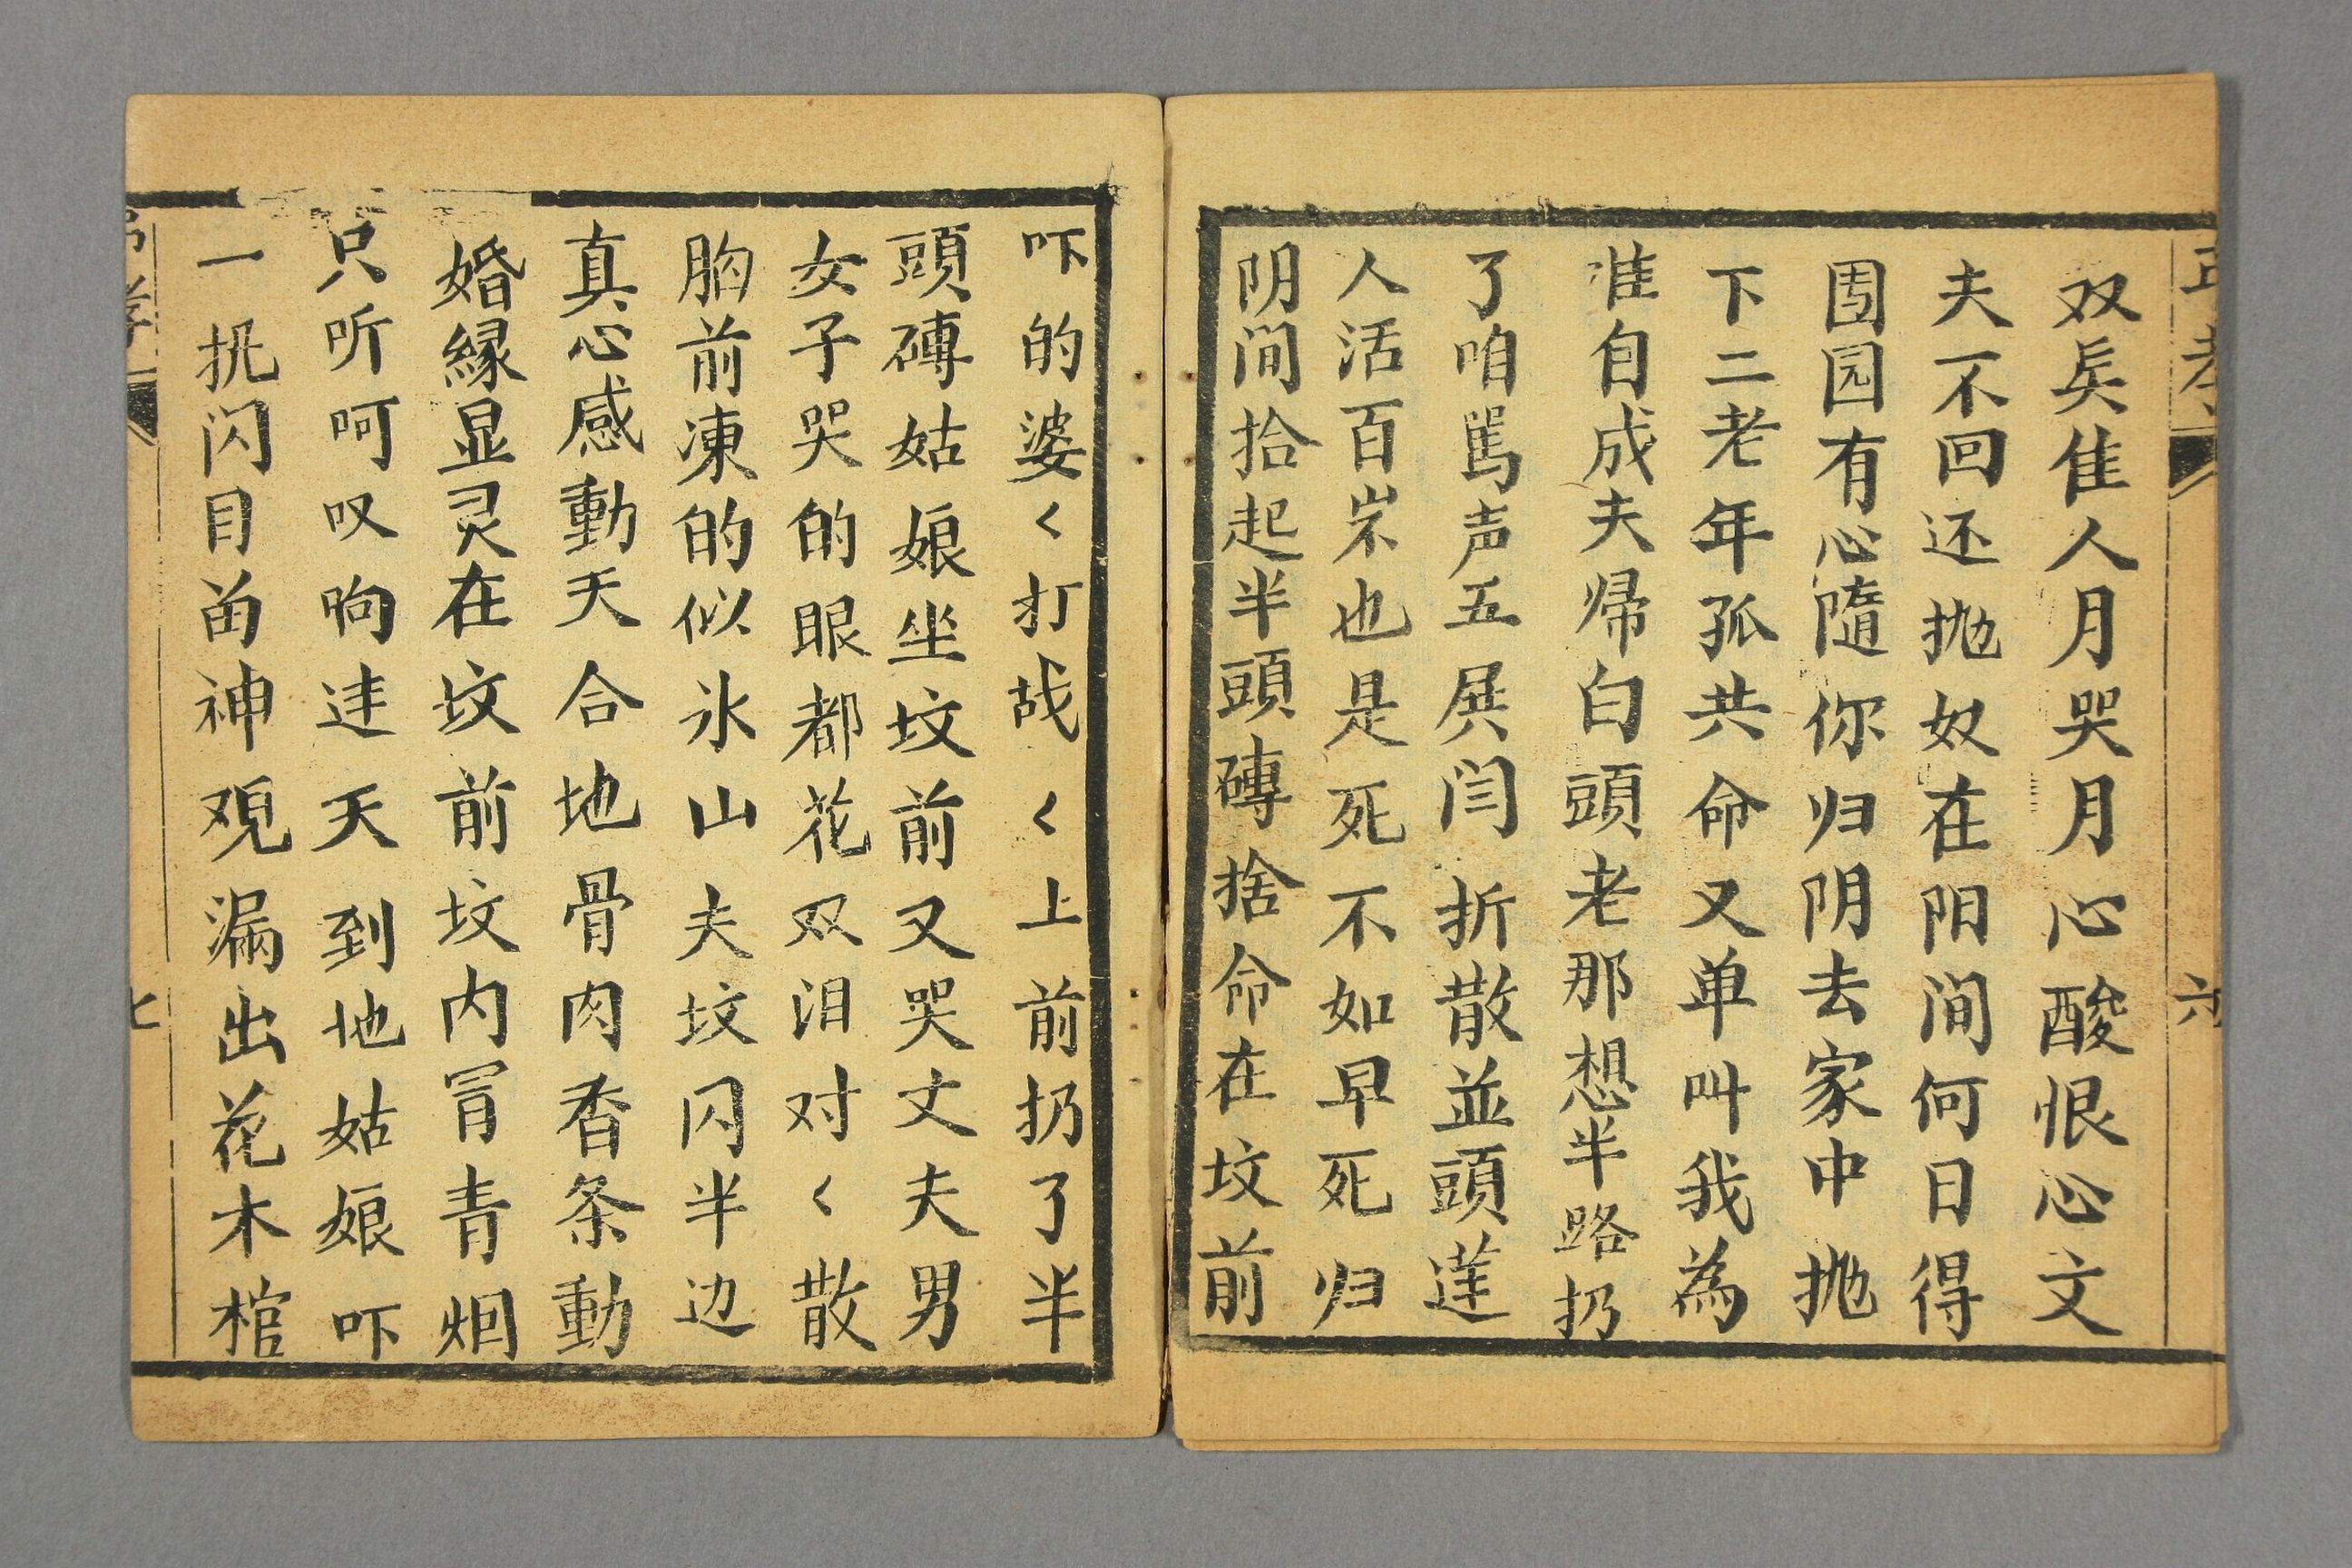 双矣隹人月哭月心酸恨心文
夫不回还抛奴在阳间何日得
囿园有心隨你归阴去家中抛
下二老年孤共命又单叫我為
准自成夫帰白頭老那想半路扔
了咱罵声五展闫折散並頭莲
人活百岽也是死死不如早死归
阴间拾起半頭磚捨命在坟前
六
吓的婆〱打战〱上前扔了半
頭磚姑娘坐坟前又哭丈夫男
女子哭的眼都花双泪对〱散
胸前凍的似氷山夫坟闪半边
真心感動天合地骨肉香条動
婚緣显灵在坟前坟内冐青烟
只听呵叹响迬天到地姑娘吓
一挑闪目苗神观漏出花木棺
七